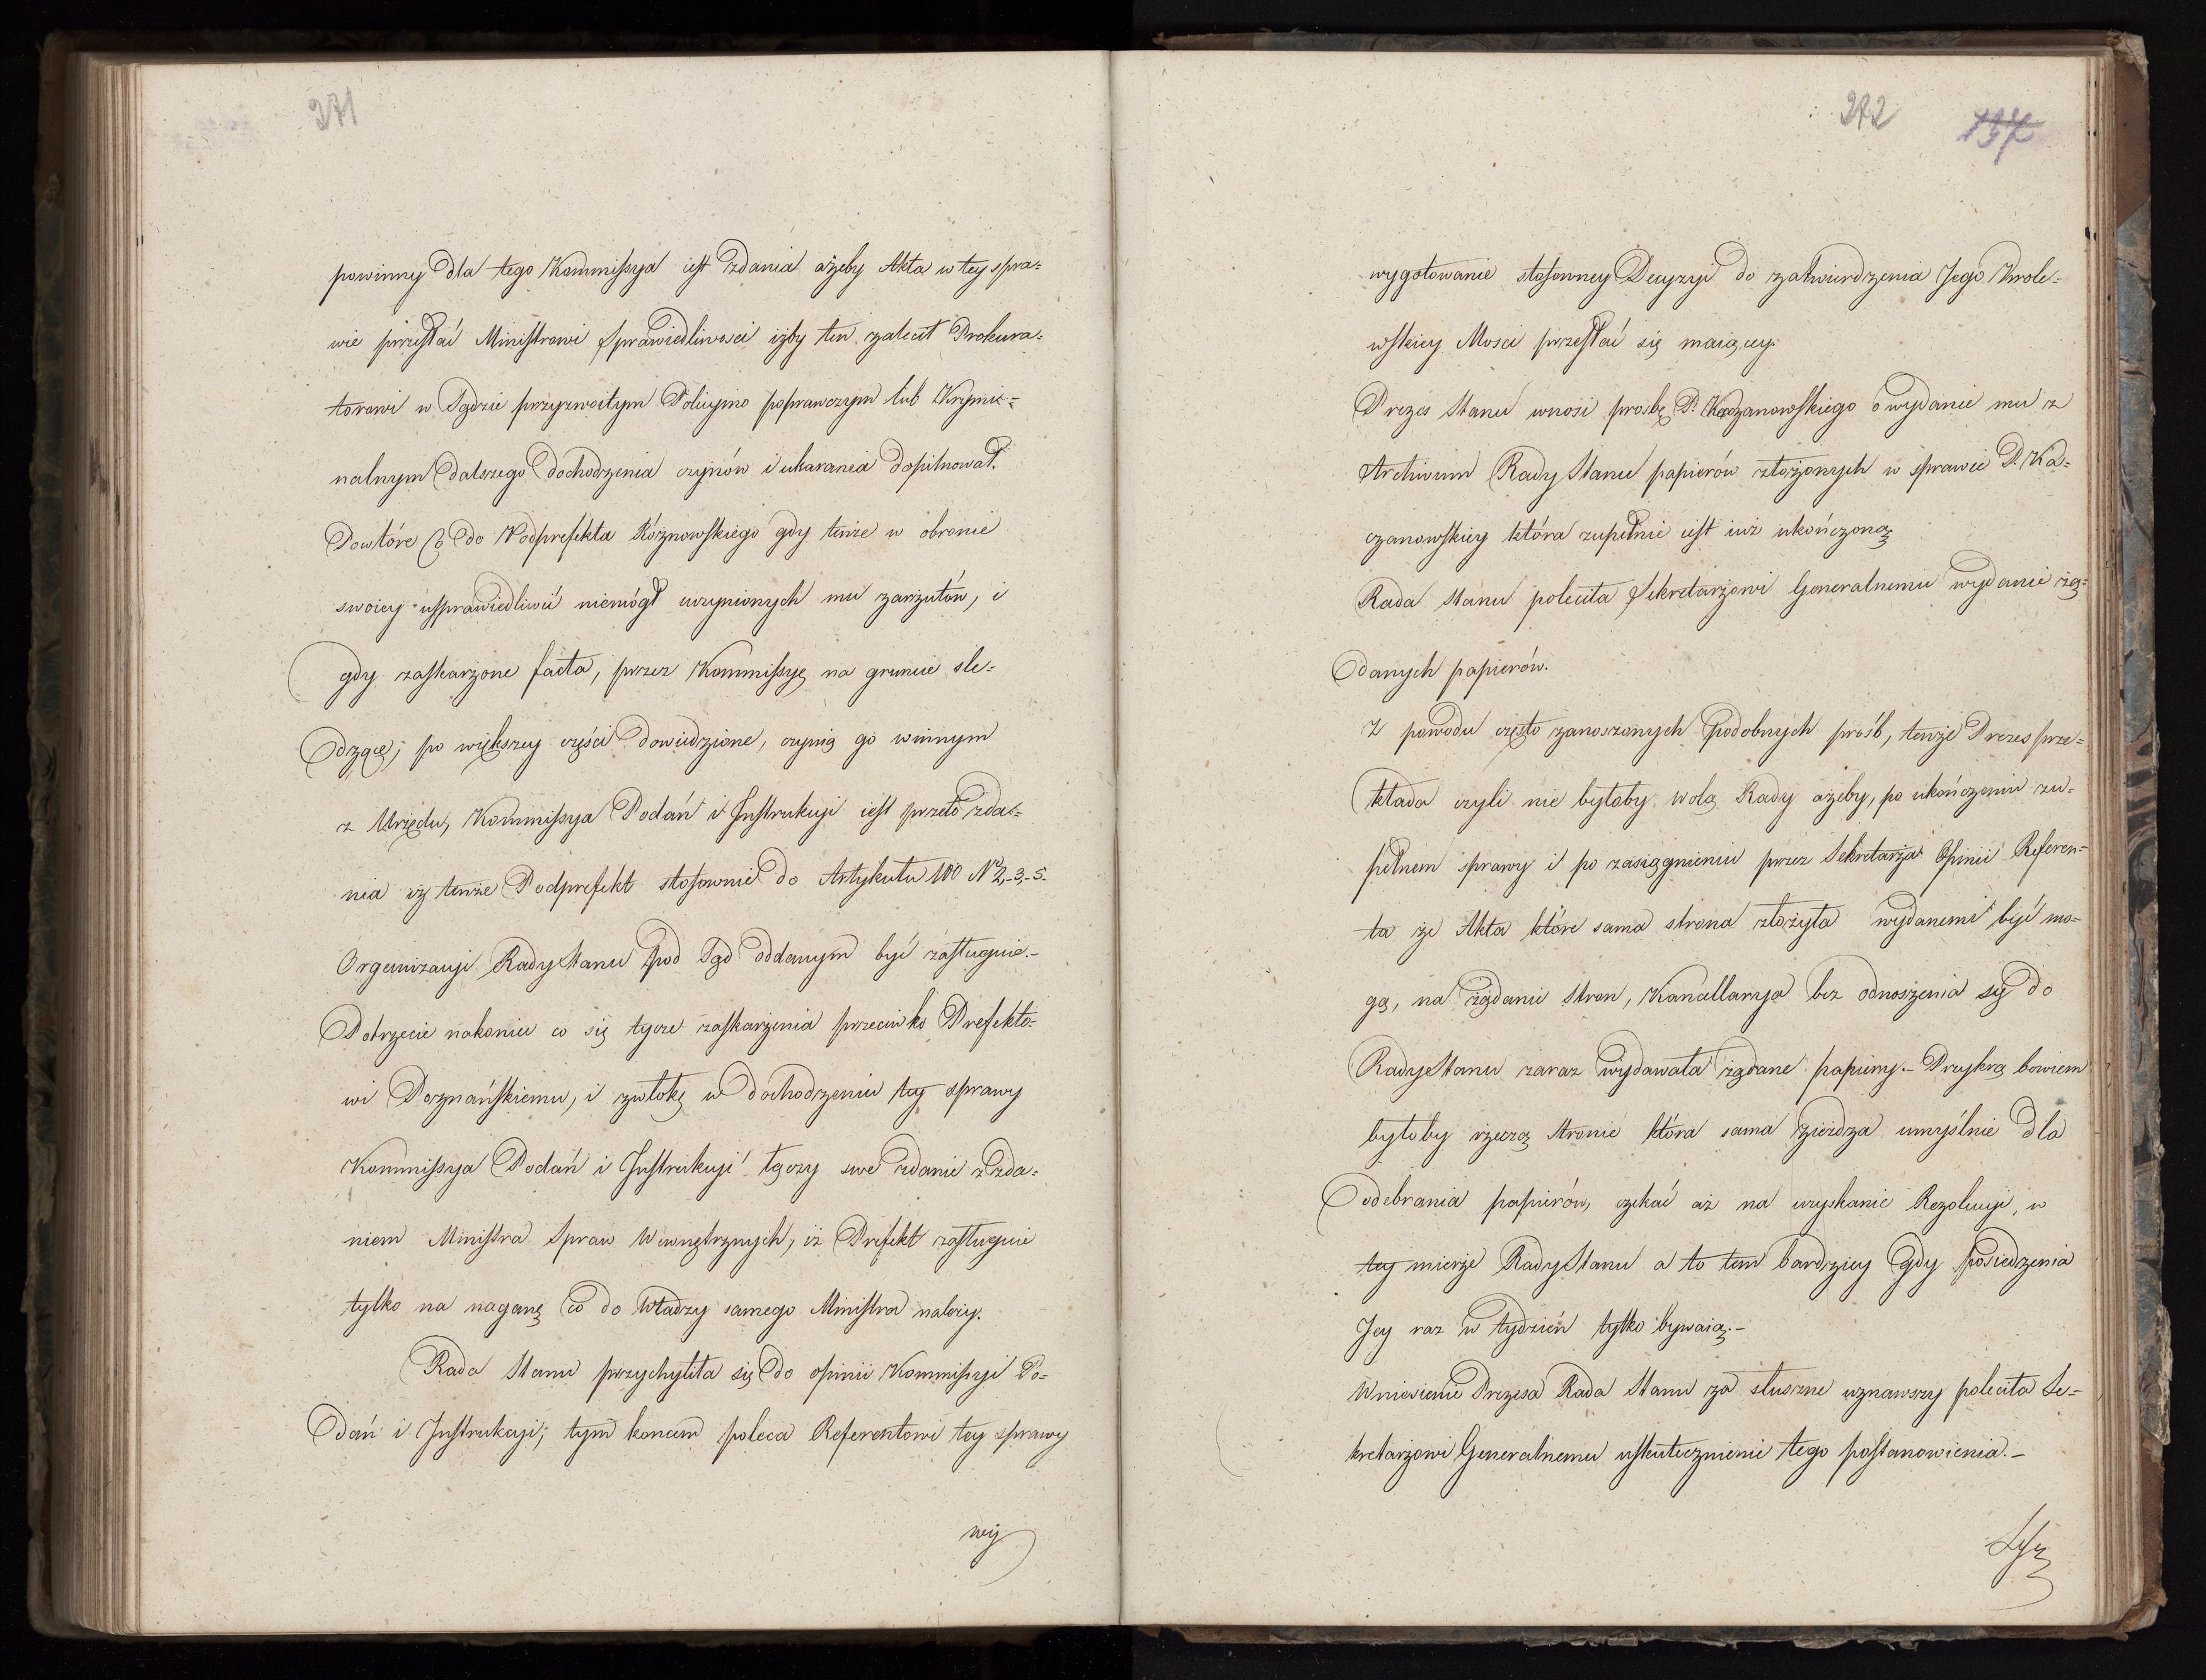 271
powinny dla tego Kommissya iest zdania ażeby Akta w tey spra=
wie przesłać Ministrowi Sprawiedliwosci iżby ten zalecił Prokura=
torowi w Sądzie przyzwoitym Policyino poprawczym lub Krymi=
nalnym dalszego dochodzenia czynów i ukarania dopilnował.
Powtóre Co do Podprefekta Różnowskiego gdy tenże w obronie
swoiey usprawiedliwić niemógł uczynionych mu zarzutów, i
gdy zaskarżone facta, przez Kommissyę na gruncie sle=
dzącę, po większey części dowiedzione, czynią go winnym
z Urzędu, Kommissya Podań i Instrukcyi iest przeto zda=
nia iż tenże Podprefekt stosownie do Artykułu 100 No 2,-3,-5.
Organizacyi Rady Stanu pod Sąd oddanym być zasługuie.-
Potrzecie nakoniec co się tycze zaskarżenia przeciwko Prefekto=
wi Poznańskiemu, i zwłokę w dochodzeniu tey sprawy
Kommissya Podań i Instrukcyi łączy swe zdanie z zda=
niem Ministra Spraw Wewnętrznych, iż Prefekt zasługuie
tylko na naganę co do Władzy samego Ministra należy.
Rada Stanu przychyliła się do opinii Kommissyi Po=
dań i Instrukcyi; tym koncem poleca Referentowi tey sprawy
wy
272
137
wygotowanie stosowney Decyzyi do zatwierdzenia Jego Krole=
wskiey Mosci przesłać się maiącey.
Prezes Stanu wnosi prosbę P. Kaczanowskiego o wydanie mu z
Archiwum Rady Stanu papierów złożonych w sprawie P. Ka=
czanowskiey która zupełnie iest iuż ukończoną
Rada Stanu poleciła Sekretarzowi Generalnemu wydanie żą=
danych papierów.
Z powodu często zanoszonych podobnych próśb, tenże Prezes prze=
kłada czyli nie byłoby wolą Rady ażeby, po ukończeniu zu=
pełnem sprawy i po zasiągnieniu przez Sekretarza Opinii Referen=
ta że Akta które sama strona złożyła wydanemi być mo=
gą, na żądanie stron, Kancellarya bez odnoszenia się do
Rady Stanu zaraz wydawała żądane papiery.- Przykrą bowiem
byłoby rzeczą stronie która sama zieżdża umyślnie dla
odebrania papierów, czekać aż na uzyskanie Rezolucyi, w
tey mierze Rady Stanu a to tem bardziey gdy posiedzenia
Jey raz w tydzień tylko bywaią.-
Wniesienie Prezesa Rada Stanu za słuszne uznawszy poleciła Se=
kretarzowi Generalnemu uskutecznienie tego postanowienia.-